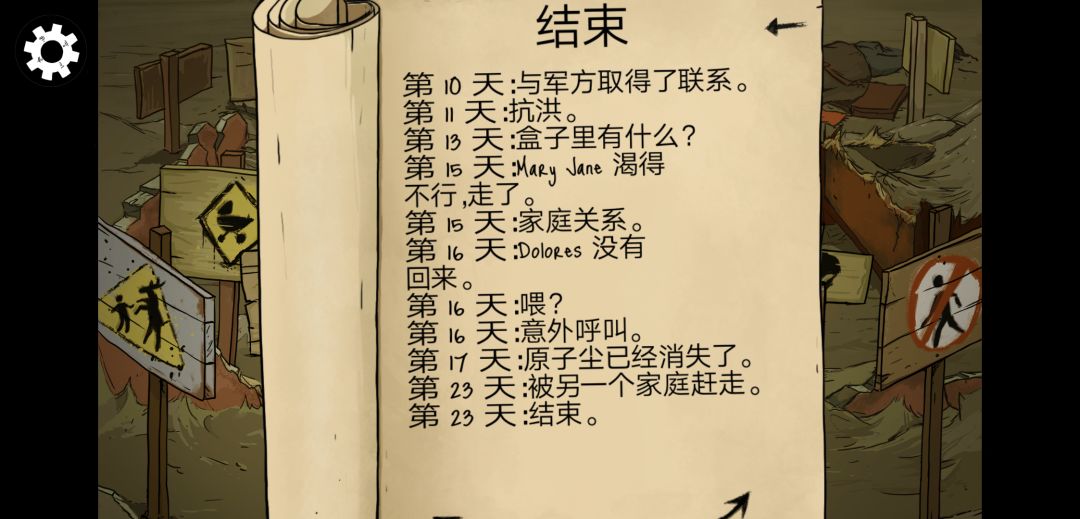 结束
第 10 天:与军方取得了联系。
第 11 天:抗洪。
第 13 天:盒子里有什么?
第 15 天:Mary Jane 渴得
不行,走了。
第 15 天:家庭关系。
第 16 天:Dolores 没有
回来。
第 16 天:喂?
第 16 天:意外呼叫。
第 17 天:原子尘已经消失了。
第 23 天:被另一个家庭赶走。
第 23 天:结束。